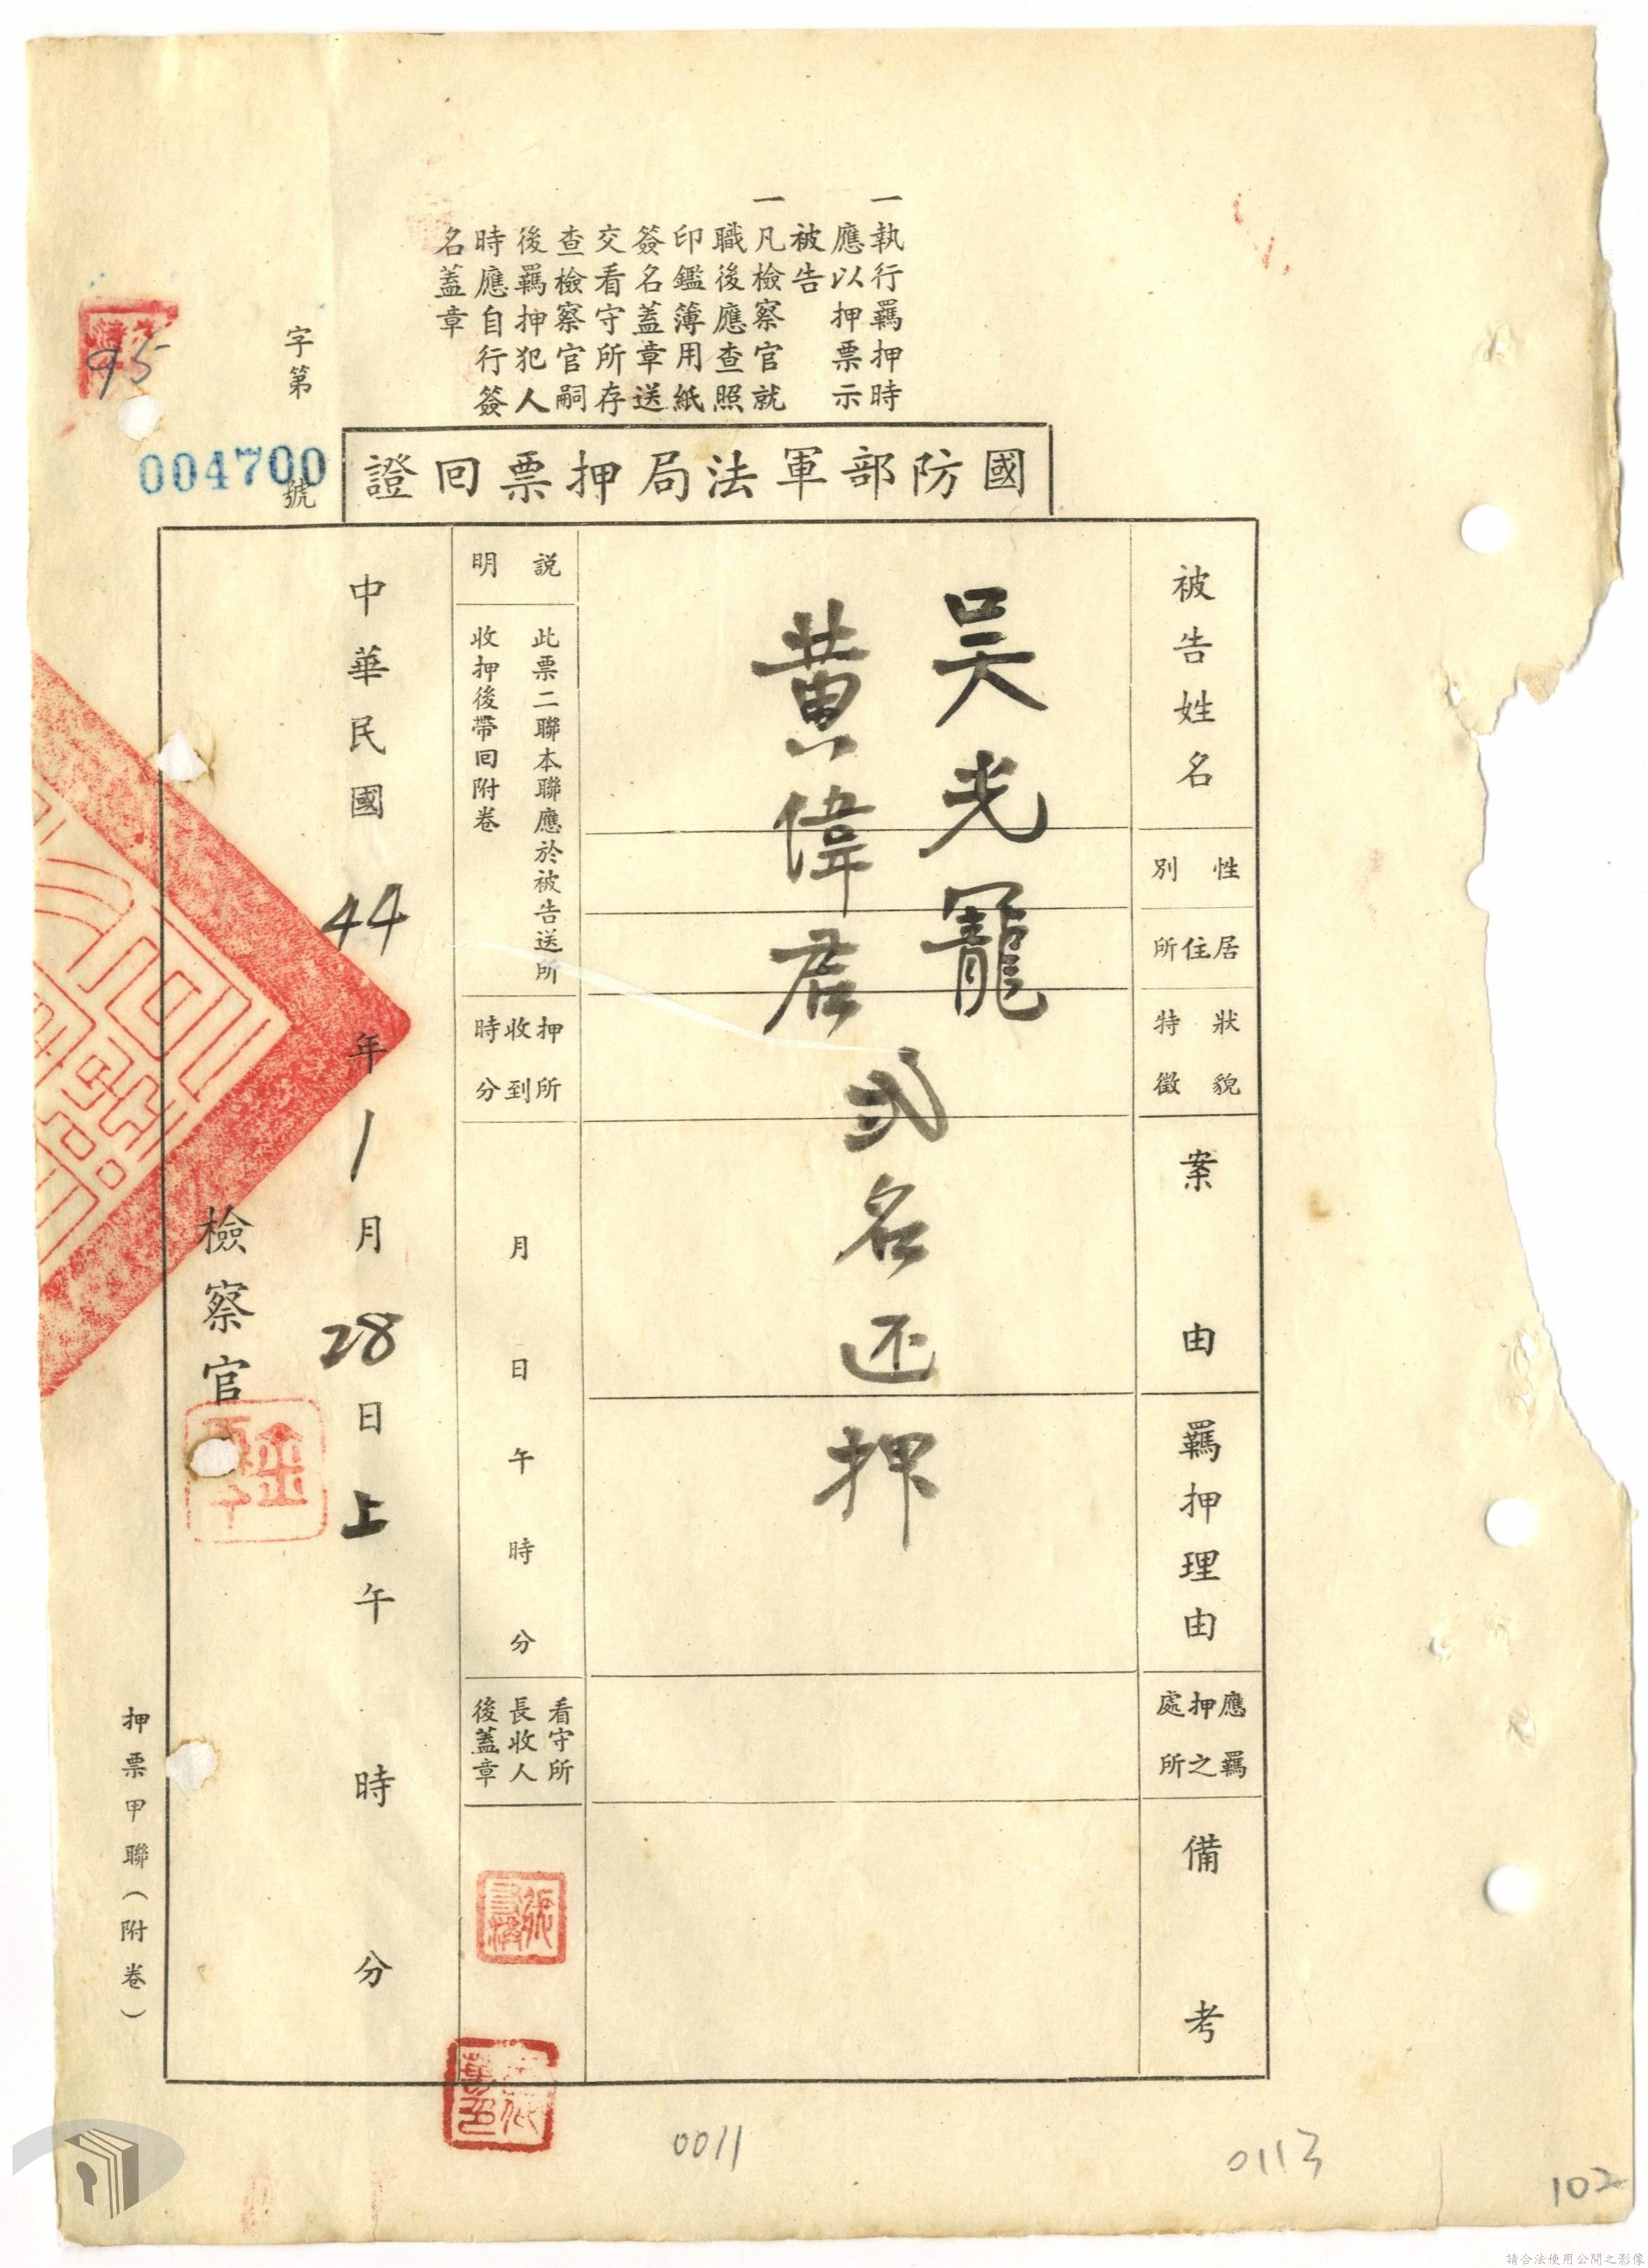 一執行羈押時
應以押票示
被告
一凡檢察官就
職後應查照
印鑑簿用紙
簽名蓋章送
交看守所存
查檢察官嗣
後羈押犯人
時應自行簽
名蓋章
字第
004700
號
95
國防部軍法局押票回證
被告姓名
性別
居住所
狀貌特徵
案由
羈押理由
應羈押之處所
備考
吴光龍
黄偉君
弍名还押
説明
此票二聯本聯應於被告送所
收押後帶回附卷
押所收到時分
月日午時分
看守所長收人後蓋章
中華民國44年1月28日上午時分
檢察官
押票甲聯(附卷)
0011
0113
102
請合法使用公開之影像